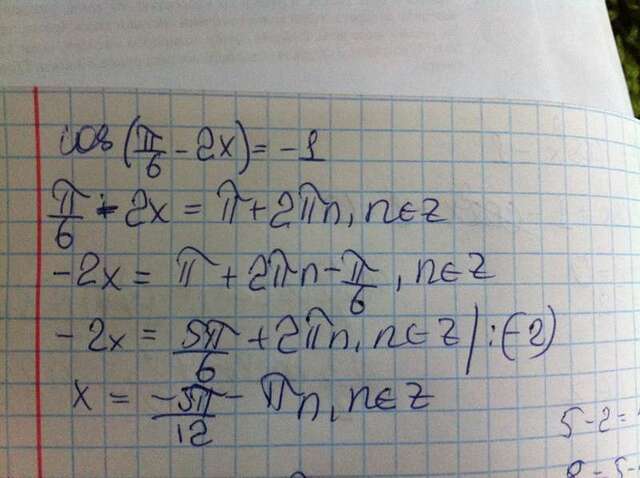 cos(π/6 - 2x) = -1
π/6 - 2x = π + 2πn, n∈Z
-2x = π + 2πn - π/6, n∈Z
-2x = 5π/6 + 2πn, n∈Z | :(-2)
x = -5π/12 - πn, n∈Z
5-2=